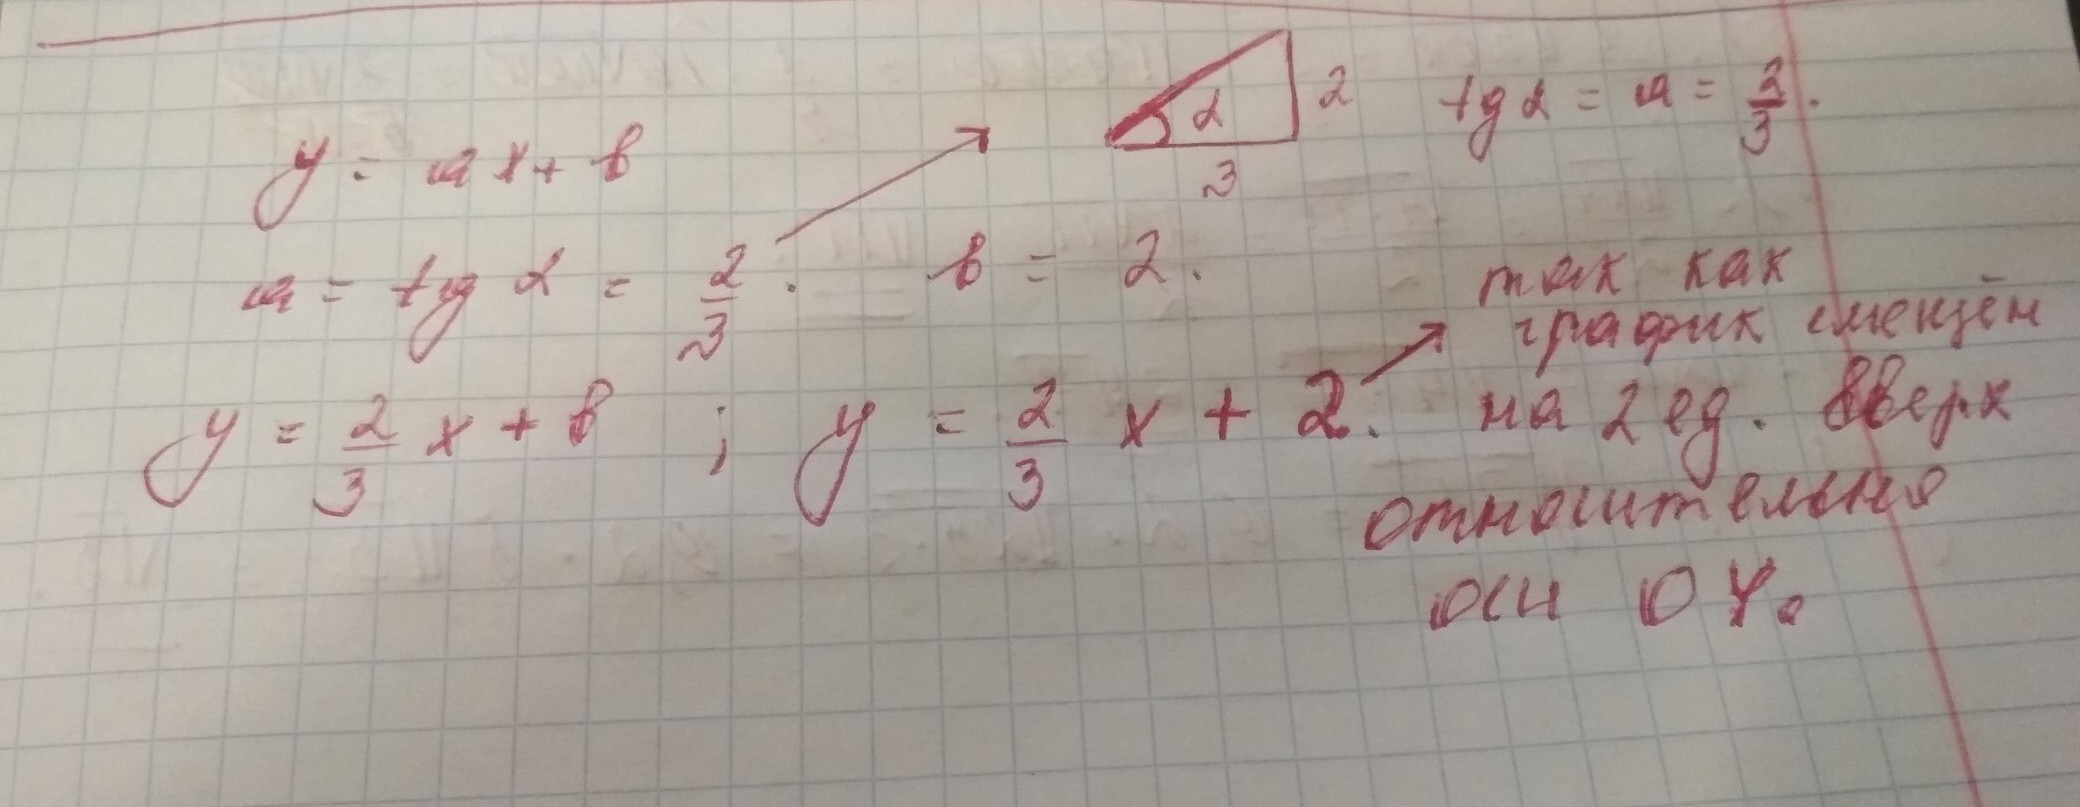 y = ax + b
2
3
tg α = a = 2/3.
a = tg α = 2/3. b = 2.
y = 2/3 x + b ; y = 2/3 x + 2.
α
так как
график смещён
на 2 ед. вверх
относительно
оси OY.